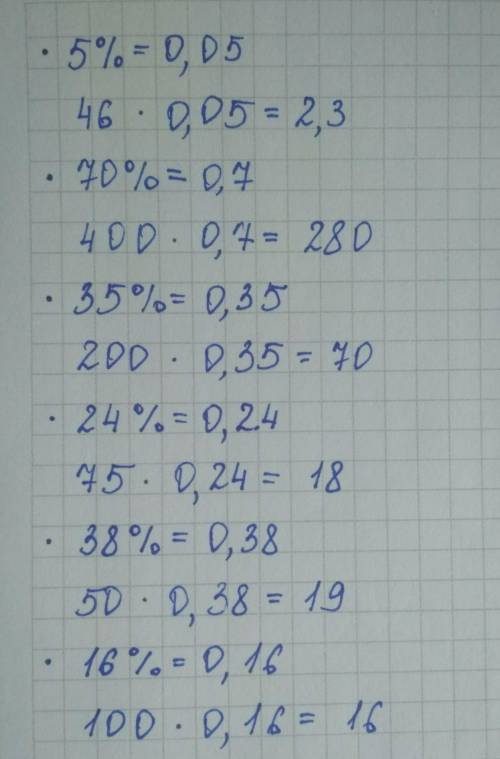 · 5% = 0,05
46 · 0,05 = 2,3
· 70% = 0,7
400 · 0,7 = 280
· 35% = 0,35
200 · 0,35 = 70
· 24% = 0,24
75 · 0,24 = 18
· 38% = 0,38
50 · 0,38 = 19
· 16% = 0,16
100 · 0,16 = 16